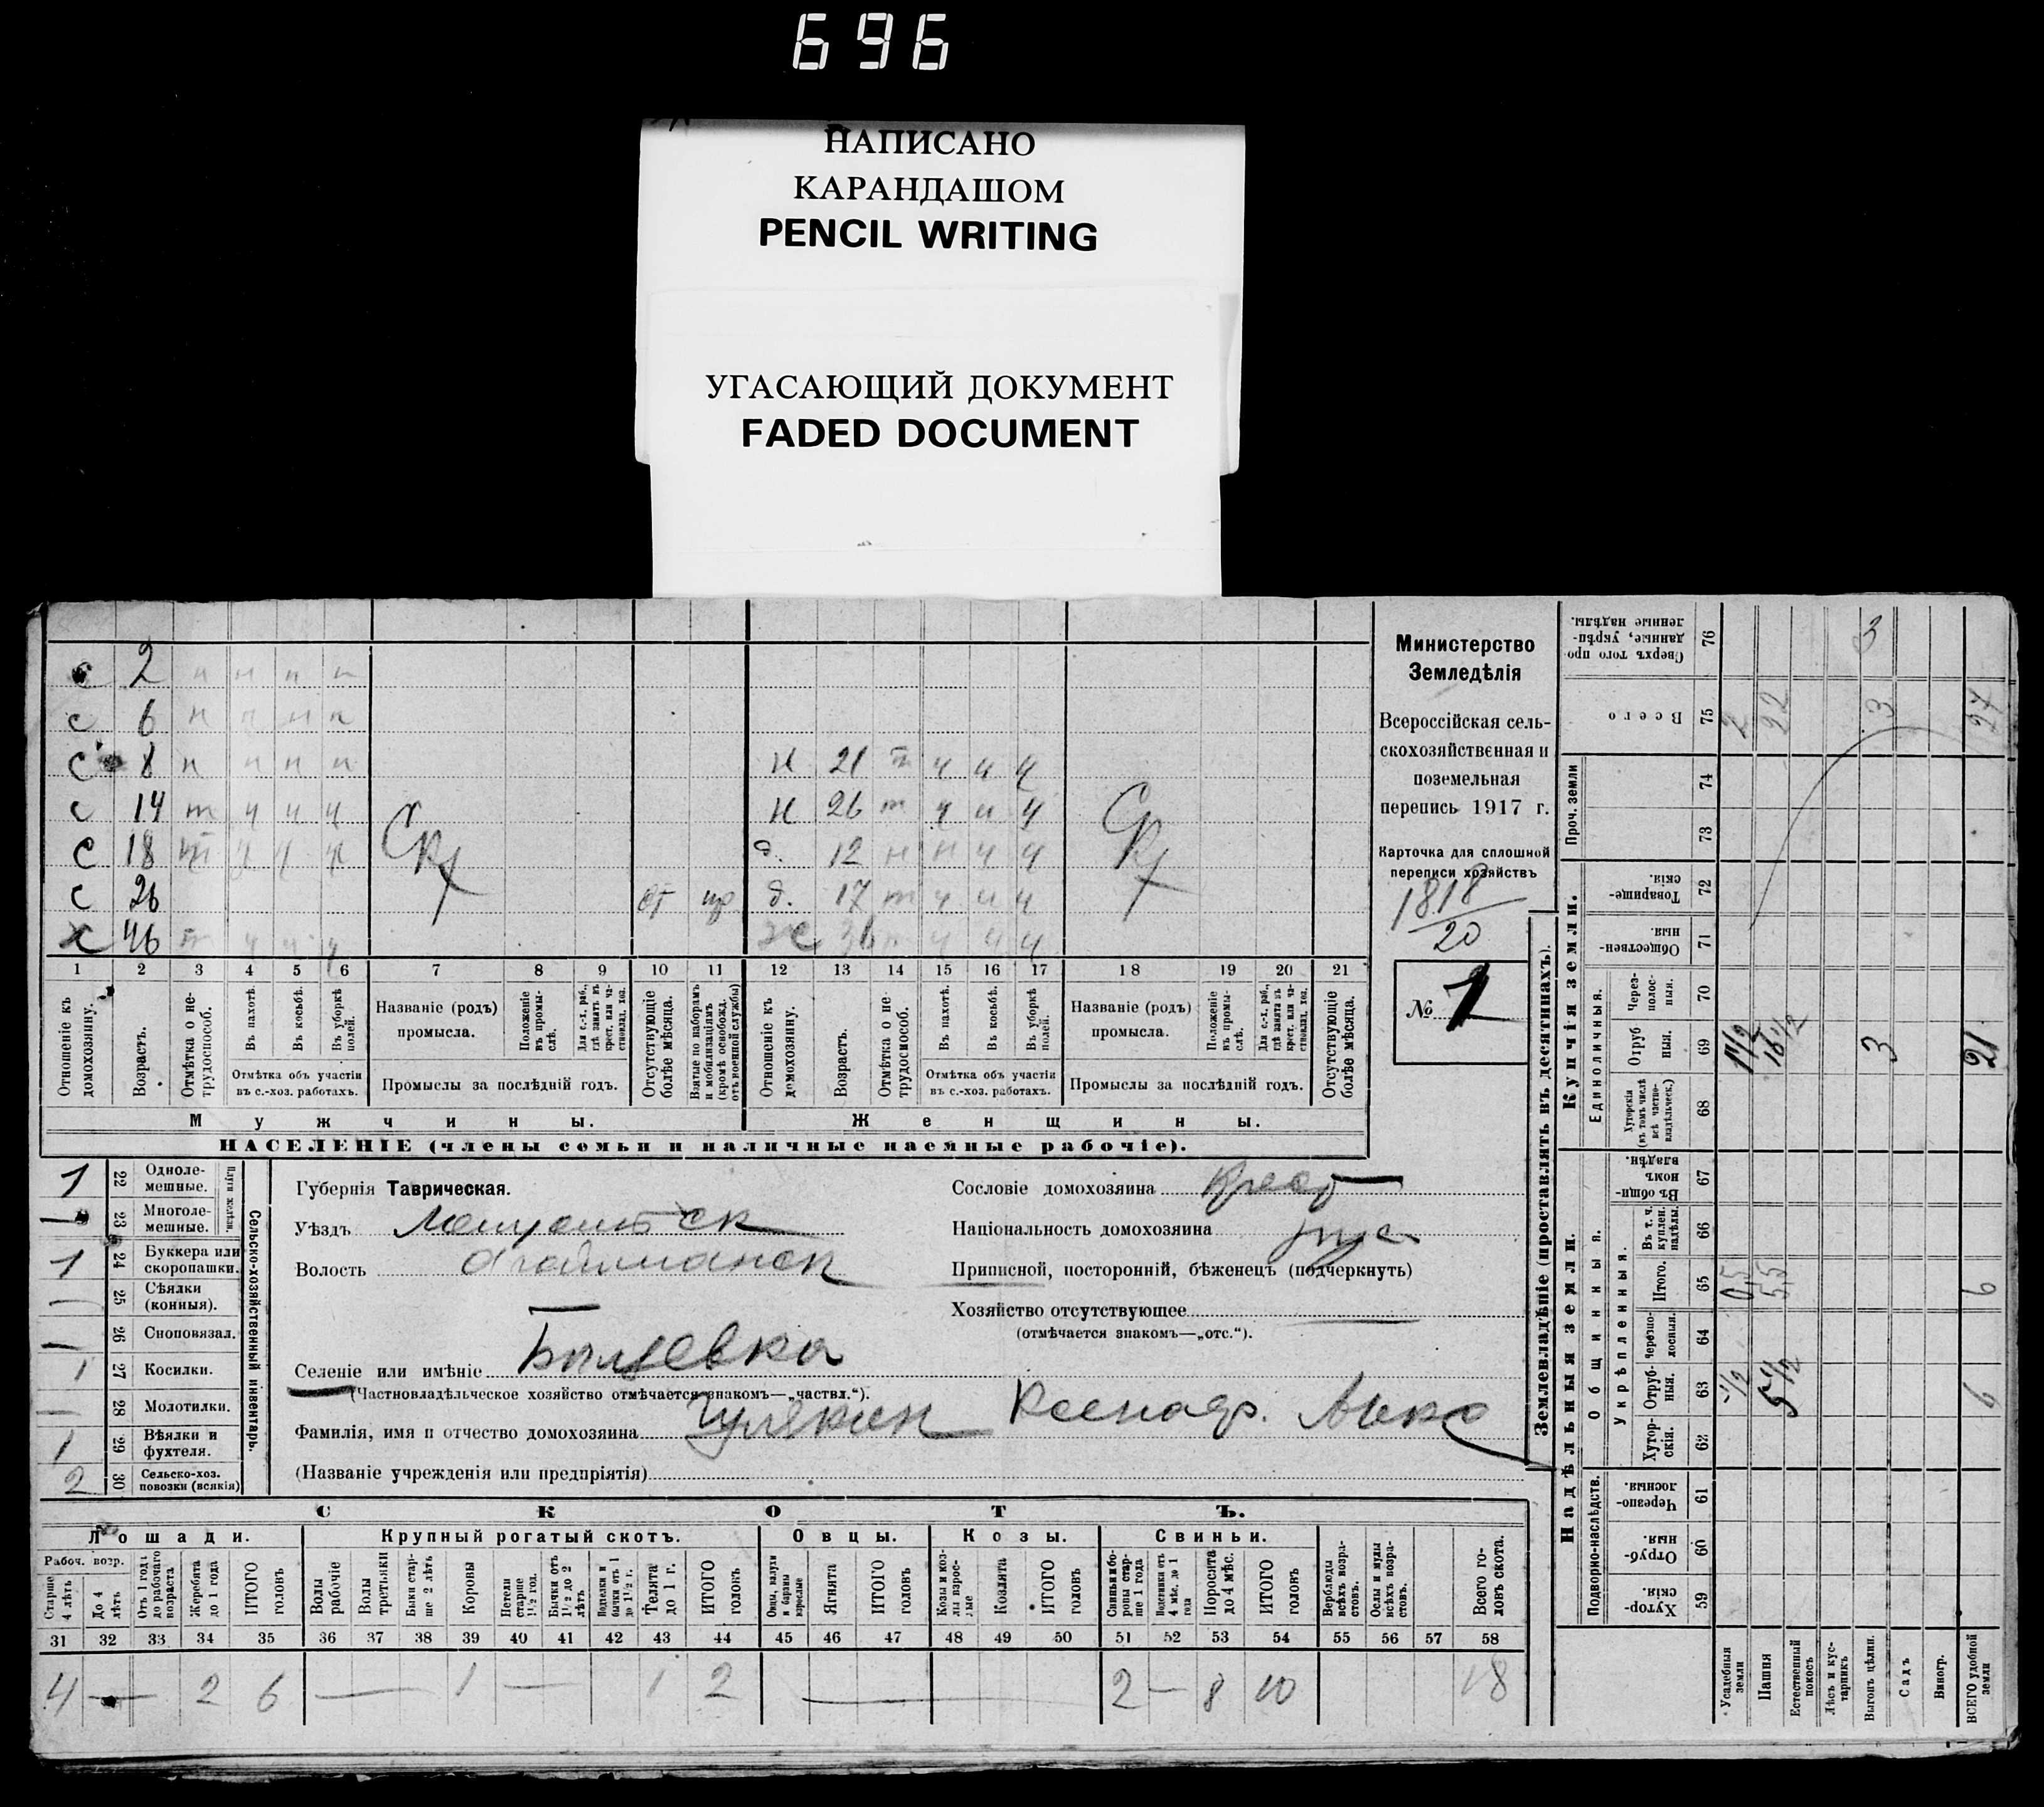 696
НАПИСАНО
КАРАНДАШОМ
PENCIL WRITING
УГАСАЮЩИЙ ДОКУМЕНТ
FADED DOCUMENT
Министерство
Земледѣлія
Всероссійская сель-
скохозяйственная и
поземельная
перепись 1917 г.
Карточка для сплошной
переписи хозяйствъ
1818/20
№ 1
с 2 н н н н
с 6 н н н н
с 8 н н н н н 21 т ч ч ч
с 14 т ч ч ч н 26 т ч ч ч
с 18 т ч ч ч д. 12 н н ч ч
с 26 от д. 17 т ч ч ч
х 46 т ч ч ч ж 36 т ч ч ч
1 2 3 4 5 6 7 8 9 10 11 12 13 14 15 16 17 18 19 20 21
Отношеніе къ домохозяину.
Возрастъ.
Отмѣтка о не-трудоспособ.
Въ пахотѣ.
Въ косьбѣ.
Въ уборкѣ полей.
Отмѣтка объ участіи
въ с.-хоз. работахъ.
Названіе (родъ)
промысла.
Положеніе въ промы-слѣ.
Для с.-х. раб., гдѣ занятъ въ крест. или ча-стновлад. хоз.
Промыслы за послѣдній годъ.
Отсутствующіе болѣе мѣсяца.
Взятые по наборамъ и мобилизаціямъ (кромѣ освобожд. отъ военной службы)
Отношеніе къ домохозяину.
Возрастъ.
Отмѣтка о не-трудоспособ.
Въ пахотѣ.
Въ косьбѣ.
Въ уборкѣ полей.
Отмѣтка объ участіи
въ с.-хоз. работахъ.
Названіе (родъ)
промысла.
Положеніе въ промы-слѣ.
Для с.-х. раб., гдѣ занятъ въ крест. или ча-стновлад. хоз.
Промыслы за послѣдній годъ.
Отсутствующіе болѣе мѣсяца.
Мужчины. Женщины.
НАСЕЛЕНІЕ (члены семьи и наличные наемные рабочіе).
Сельско-хозяйственный инвентарь.
1 22 Одноле-мешные.
— 23 Многоле-мешные.
1 24 Буккера или скоропашки.
— 25 Сѣялки (конныя).
— 26 Сноповязал.
1 27 Косилки.
— 28 Молотилки.
1 29 Вѣялки и фухтеля.
2 30 Сельско-хоз. повозки (всякія)
Губернія Таврическая.
Уѣздъ
Волость
Селеніе или имѣніе
(Частновладѣльческое хозяйство отмѣчается знакомъ—„частвл.“).
Фамилія, имя и отчество домохозяина
(Названіе учрежденія или предпріятія)
Сословіе домохозяина
Національность домохозяина рус
Приписной, посторонній, бѣженецъ (подчеркнуть)
Хозяйство отсутствующее
(отмѣчается знакомъ—„отс.“).
СКОТЪ.
Лошади. Крупный рогатый скотъ. Овцы. Козы. Свиньи.
Рабоч. возр.
Старше 4 лѣтъ
До 4 лѣтъ
Отъ 1 года до рабочаго возраста
Жеребята до 1 года
ИТОГО головъ
Волы рабочіе
Волы третьяки
Быки стар-ше 2 лѣтъ
Коровы
Нетели старше 1½ год.
Бычки отъ 1½ до 2 лѣтъ
Телки и бычки отъ 1 до 1½ г.
Телята до 1 г.
ИТОГО головъ
Овцы, валухи и бараны взрослые
Ягнята
ИТОГО головъ
Козы и коз-лы взрос-лые
Козлята
ИТОГО головъ
Свиньи и бо-ровы стар-ше 1 года
Подсвинки отъ 4 мѣс. до 1 года
Поросята до 4 мѣс.
ИТОГО головъ
Верблюды всѣхъ возра-стовъ.
Ослы и мулы всѣхъ возра-стовъ.
Всего го-ловъ скота.
31 32 33 34 35 36 37 38 39 40 41 42 43 44 45 46 47 48 49 50 51 52 53 54 55 56 57 58
4 — 2 6 — 1 — 1 2 — 2 — 8 10 18
Землевладѣніе (проставлять въ десятинахъ).
Надѣльныя земли. Купчія земли.
Подворно-наслѣдств.
Общинныя.
Укрѣпленныя.
Единоличныя.
Проч. земли
Сверхъ того про-данные, укрѣп-ленные надѣлы. 76 3
Всего 75 2 22 3 27
74
73
Товарище-скія. 72
Обществен-ныя. 71
Через-полос-ныя. 70
Отруб-ныя. 69 1½ 16½ 3 21
Хуторскія (въ томъ числѣ всѣ частно-владѣльческ.) 68
Въ общи-номъ владѣн. 67
Въ т. ч. куплен. надѣлы. 66
Итого. 65 0,5 5,5 6
Черезпо-лосныя. 64
Отруб-ныя. 63 ½ 5½ 6
Хутор-скія. 62
Черезпо-лосныя. 61
Отруб-ныя. 60
Хутор-скія. 59
Усадебныя земли
Пашня
Естественный покосъ
Лѣсъ и кус-тарникъ
Выгонъ цѣлин.
Садъ
Виногр.
ВСЕГО удобной земли